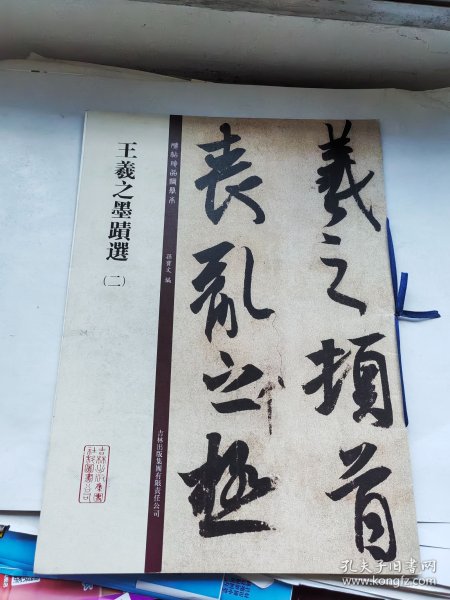 王羲之墨蹟選
(二)
碑帖珍品鋼筆系
孫寶文 編
吉林出版集團有限責任公司
羲之頓首
喪亂之極
孔夫子旧书网
www.kongfz.com